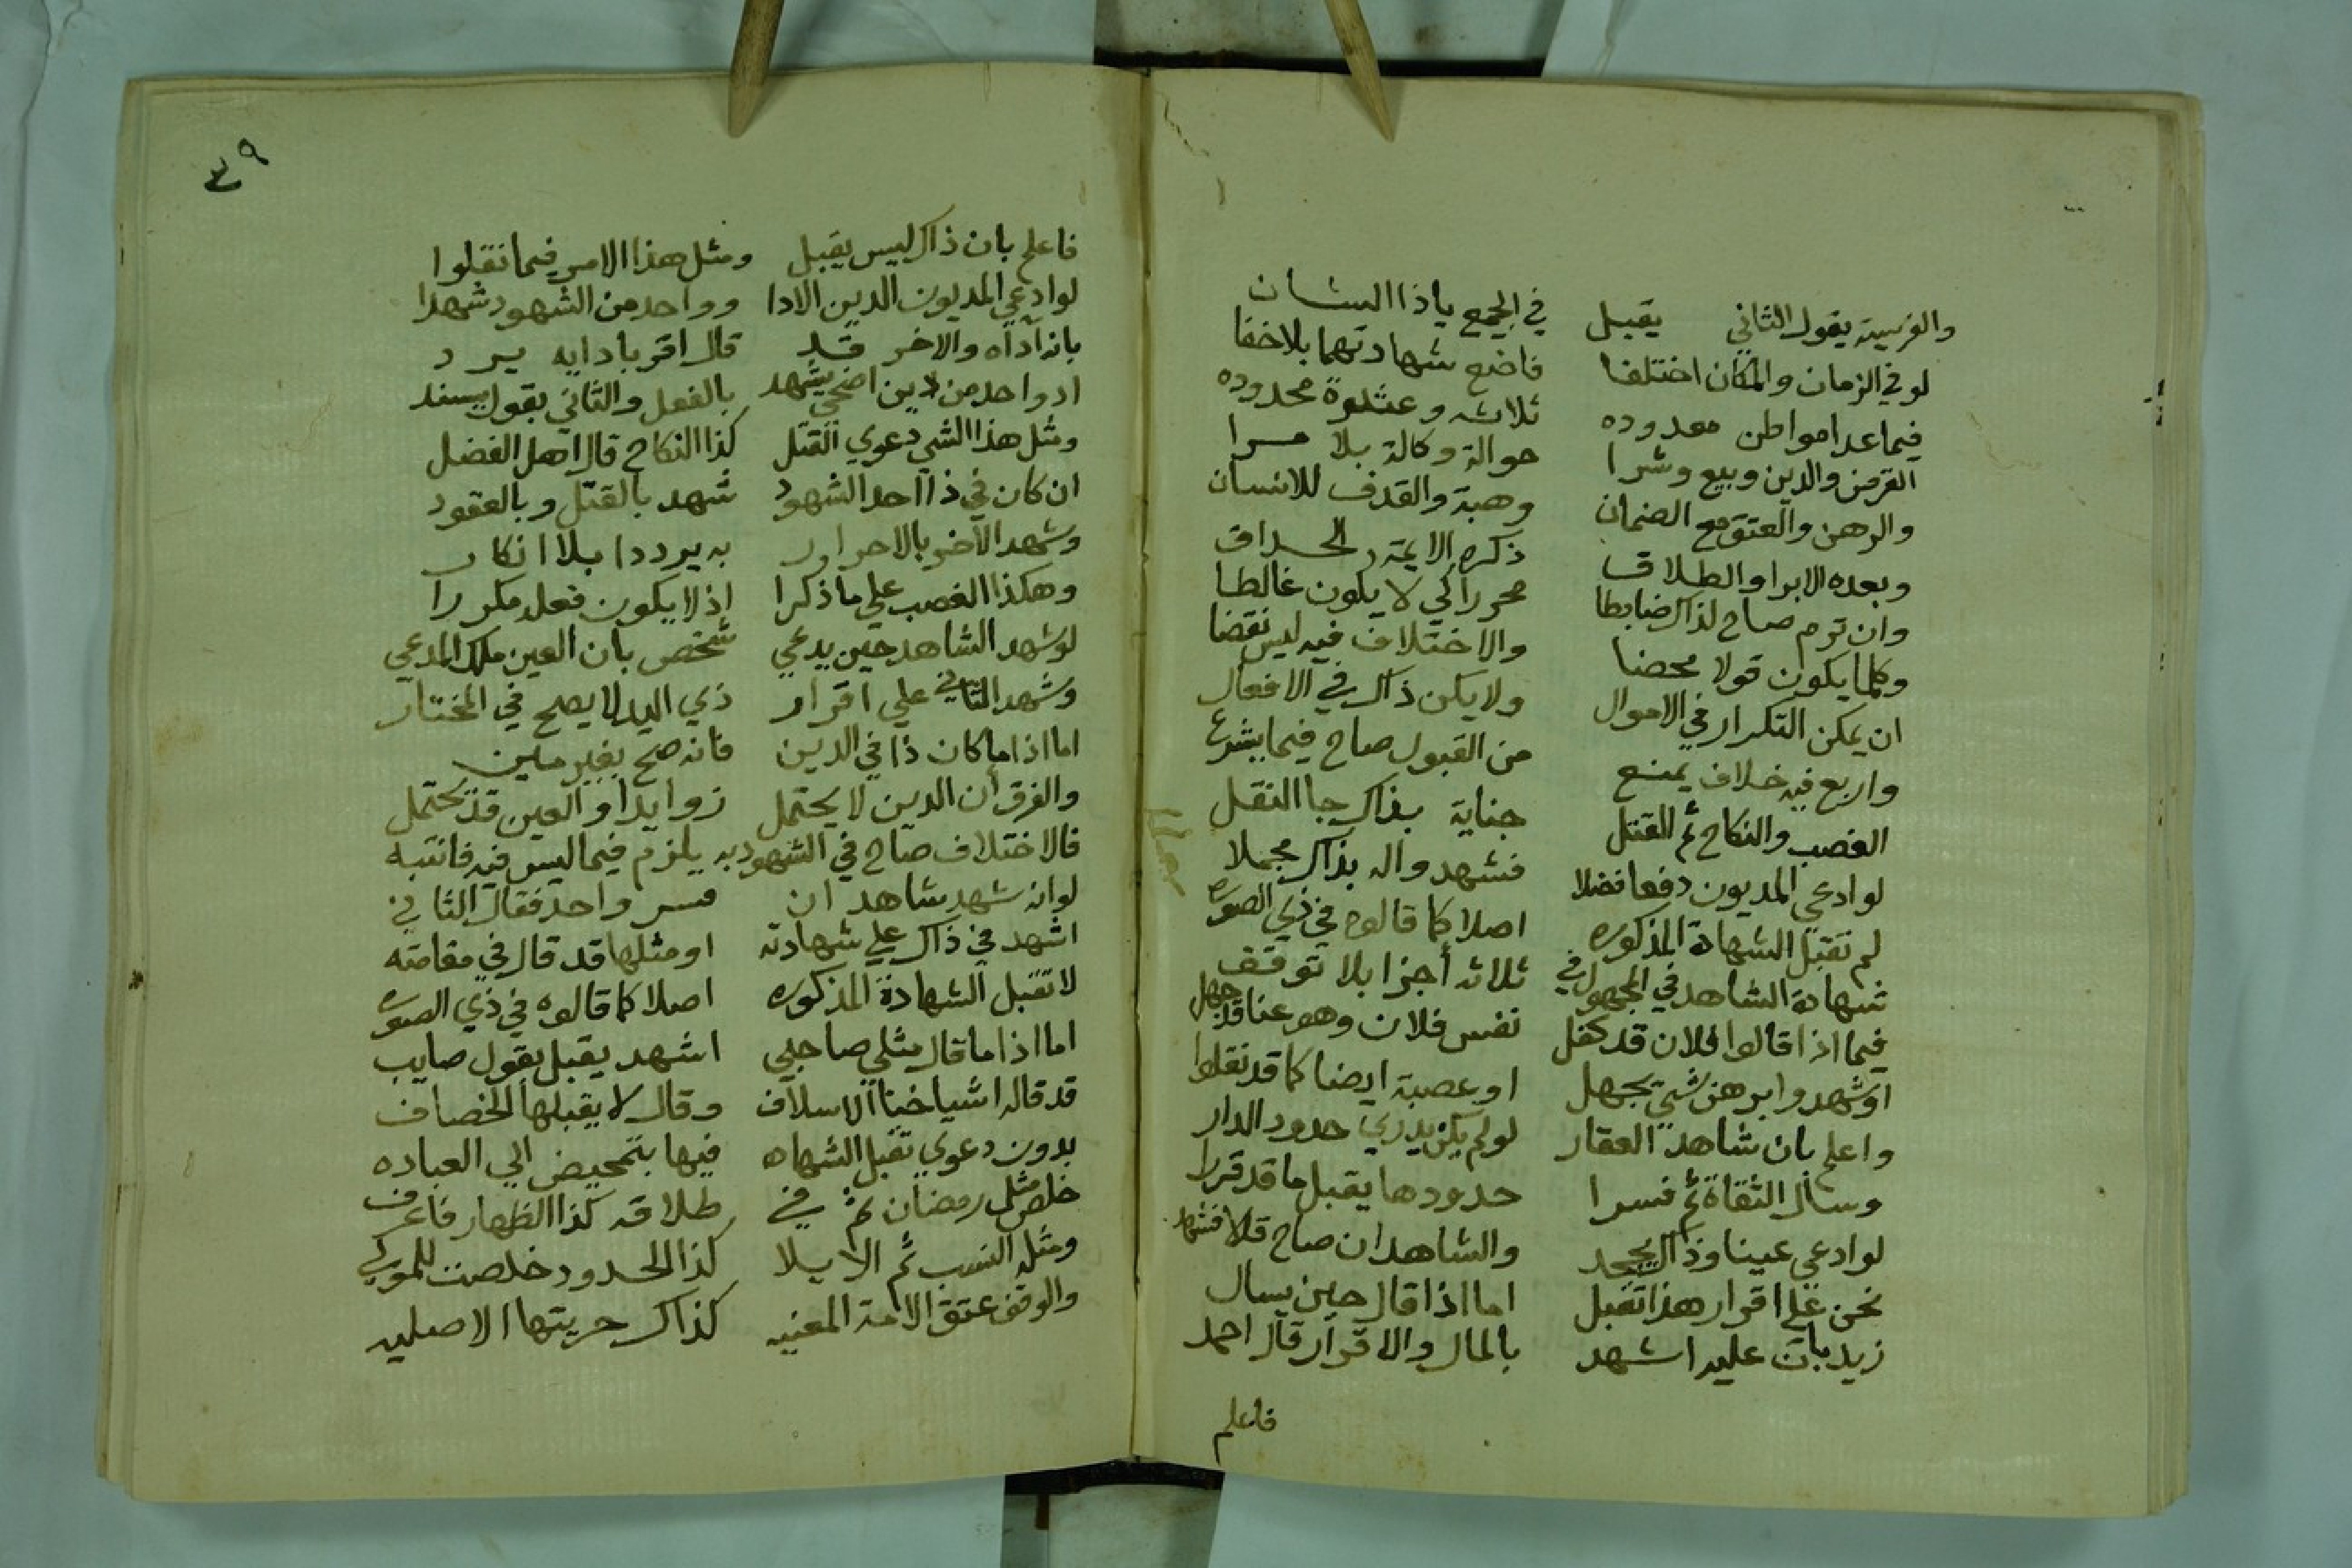 والفرسية يقول الثاني يقبل في الجميع ياذا الشان
لو في الزمان والمكان اختلفا فاضح شهادتهما بلاخفا
فيما عدا مواطن معدوده ثلاثه وعشرة محدوده
القرض والدين وبيع وشرا حوالة وكالة بلا مرا
والرهن والعتق مع الضمان وهبة والقدف للانسان
وبعده الابرا والطلاق ذكره الايمة الحذاق
وان ترم صاح لذاك ضابطا محررا كي لا يكون غالطا
وكلما يكون قولا محضا والاختلاف فيه ليس نقضا
ان يمكن التكرار في الاحوال ولا يكن ذاك في الافعال
واربع فيه خلاف يمنع من القبول صاح فيما يشرع
الغصب والنكاح ثم القتل جناية بذاك جا النقل
لو ادعي المديون دفعا فضلا فشهدوا له بذاك مجملا
لم تقبل الشهادة المذكوره اصلا كما قالوه في ذي الصوره
شهادة الشاهد في المجهول في ثلاثه أجزا بلا توقف
فيما اذا قالوا فلان قد كفل نفس فلان وهو عنا قد جهل
او شهدوا برهن شي يجهل او عصبة ايضا كما قد نقلوا
واعلم بان شاهد العقار لو لم يكن يدري حدود الدار
وسال الثقاة ثم فسرا حدودها يقبل ما قد قررا
لو ادعي عينا وذاك يجحد والشاهدان صاح قلا فشهد
نحن علي اقرار هذا تقبل اما اذا قال حين يسال
زيد بات عليه اشهد بالمال والاقرار قال احمد
فاعلم
٣٩
فاعلم بان ذاك ليس يقبل ومثل هذا الامر فيما نقلوا
لو ادعي المديون الدين الادا وواحد من الشهود شهدا
بانه أداه والاخر قد قال اقر بادايه يرد
اد واحد من ذين اضحي يشهد بالفعل والثاني بقول يسند
ومثل هذا الشي دعوي القتل كذا النكاح قال اهل الفضل
ان كان في ذا احد الشهود شهد بالقتل وبالعقود
وشهد الاخر بالاحرار به يردد ابلا انكار
وهكذا الغصب علي ما ذكرا اذ لا يكون فعله مكررا
لو شهد الشاهد حين يدعي شخص بان العين ملك المدعي
وشهد الثاني علي اقرار ذي اليد لا يصح في المختار
اما اذا ما كان ذا في الدين فانه صح بغير مين
والفرق أن الدين لا يحتمل زوايدا والعين قد تحتمل
فالاختلاف صاح في الشهود به يلزم فيما ليس فيه فانتبه
لو انه شهد شاهدان فسر واحد فقال الثاني
اشهد في ذاك علي شهادته او مثلها قد قال في مقامته
لا تقبل الشهادة المذكوره اصلا كما قالوه في ذي الصوره
اما اذا ما قال مثلي صاحبي اشهد يقبل بقول صايب
قد قاله اشياخنا الاسلاف وقال لا يقبلها الخصاف
بدون دعوي تقبل الشهاده فيها بتمحيض الي العباده
خلص مثل رمضان ثم في طلاقه كذا الظهار فاعرف
ومثله النسب ثم الايلا كذا الحدود خلصت للمولي
والوقف عتق الامة المعنيه كذاك حريتها الاصليه